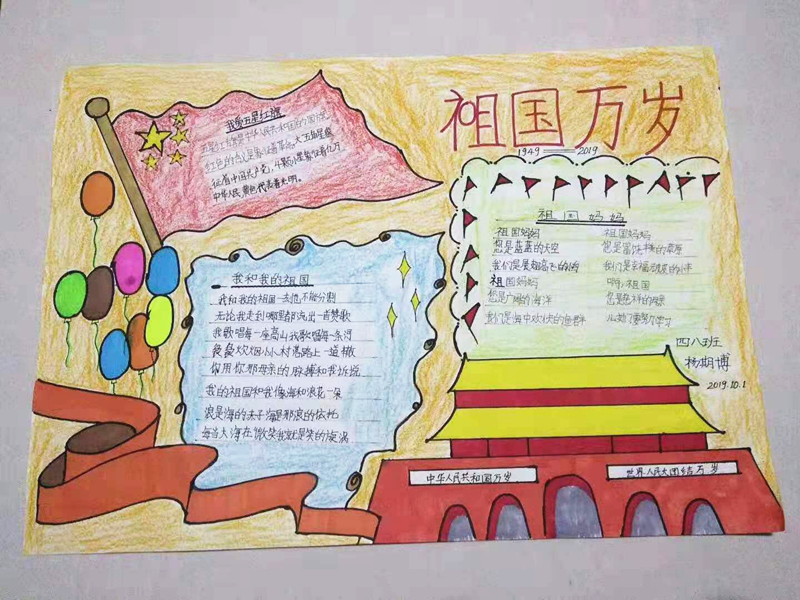 祖国万岁
1949——2019
我爱五星红旗
五星红旗是中华人民共和国的国旗
红色的色是象征着革命,大五角星象
征着中国共产党,4颗小星象征着亿万
中华人民,黄色代表着光明。
我和我的祖国
我和我的祖国一刻也不能分割
无论我走到哪里都流出一首赞歌
我歌唱每一座高山我歌唱每一条河
袅袅炊烟小小村落路上一道辙
你用你那母亲的脉搏和我诉说
我的祖国和我像海和浪花一朵
浪是海的赤子海是那浪的依托
每当大海在微笑我就是笑的旋涡
祖国妈妈
祖国妈妈
您是蓝蓝的天空
我们是展翅高飞的鸟
祖国妈妈
您是广阔的海洋
我们是海中欢快的鱼群
祖国妈妈
您是
我们是幸福
啊祖国
您是慈祥的母亲
四八班
杨期博
2019.10.1
中华人民共和国万岁
世界人民大团结万岁